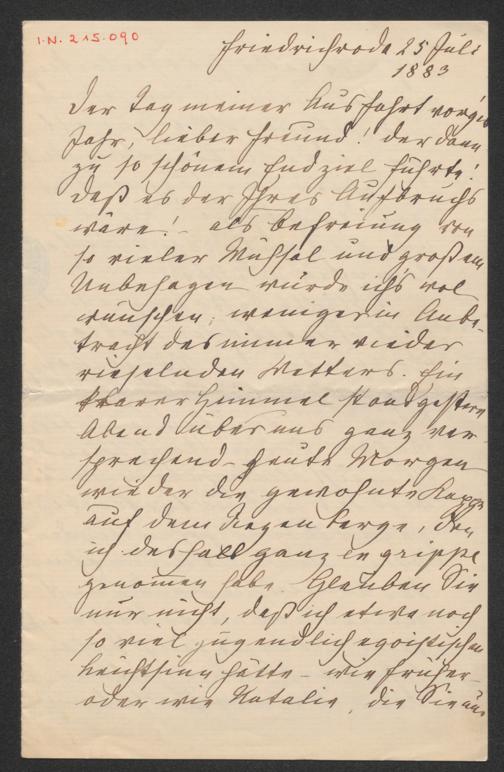 I.N. 215.090
Friedrichroda 25 Juli
1883
Der Tag meiner Ausfahrt vor'ges
Jahr, lieber Freund! der dann
zu so schönem Endziel führte!
daß es der Ihres Aufbruchs
wäre! – als Befreiung von
so vieler Mühsal und großem
Unbehagen würde ich's wol
wünschen; weniger in Anbe-
tracht des immer wieder
rieselnden Wetters. Ein
klarer Himmel stand gestern
Abend über uns ganz ver-
sprechend – heute Morgen
wieder die gewohnte Kappe
auf dem Regenberge, den
ich deshalb ganz en grippe
genommen habe. Glauben Sie
nur nicht, daß ich etwa noch
so viel jugendlich egoistischen
Leichtsinn hätte – wie früher –
oder wie Natalie, die Sie